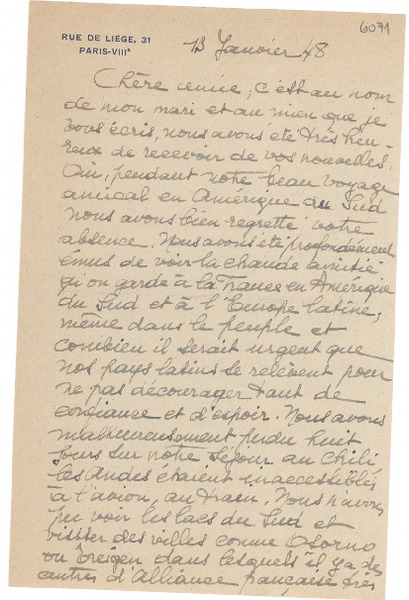 6071
RUE DE LIÈGE, 31
PARIS-VIIIᵉ
13 Janvier 48
Chère amie, c'est au nom
de mon mari et au mien que je
vous écris, nous avons été très heu-
reux de recevoir de vos nouvelles.
Oui, pendant notre beau voyage
amical en Amérique du Sud
nous avons bien regretté votre
absence. Nous avons été profondément
émus de voir la chaude amitié
qu'on garde à la France en Amérique
du Sud et à l'Europe latine,
même dans le peuple et
combien il serait urgent que
nos pays latins se relèvent pour
ne pas décourager tant de
confiance et d'espoir. Nous avons
malheureusement perdu huit
jours sur notre séjour au Chili
les Andes étaient inaccessibles
à l'avion, au train. Nous n'avons
pu voir les lacs du Sud et
visiter des villes comme Osorno
ou Treigen dans lesquels il y a des
centres d'Alliance française très